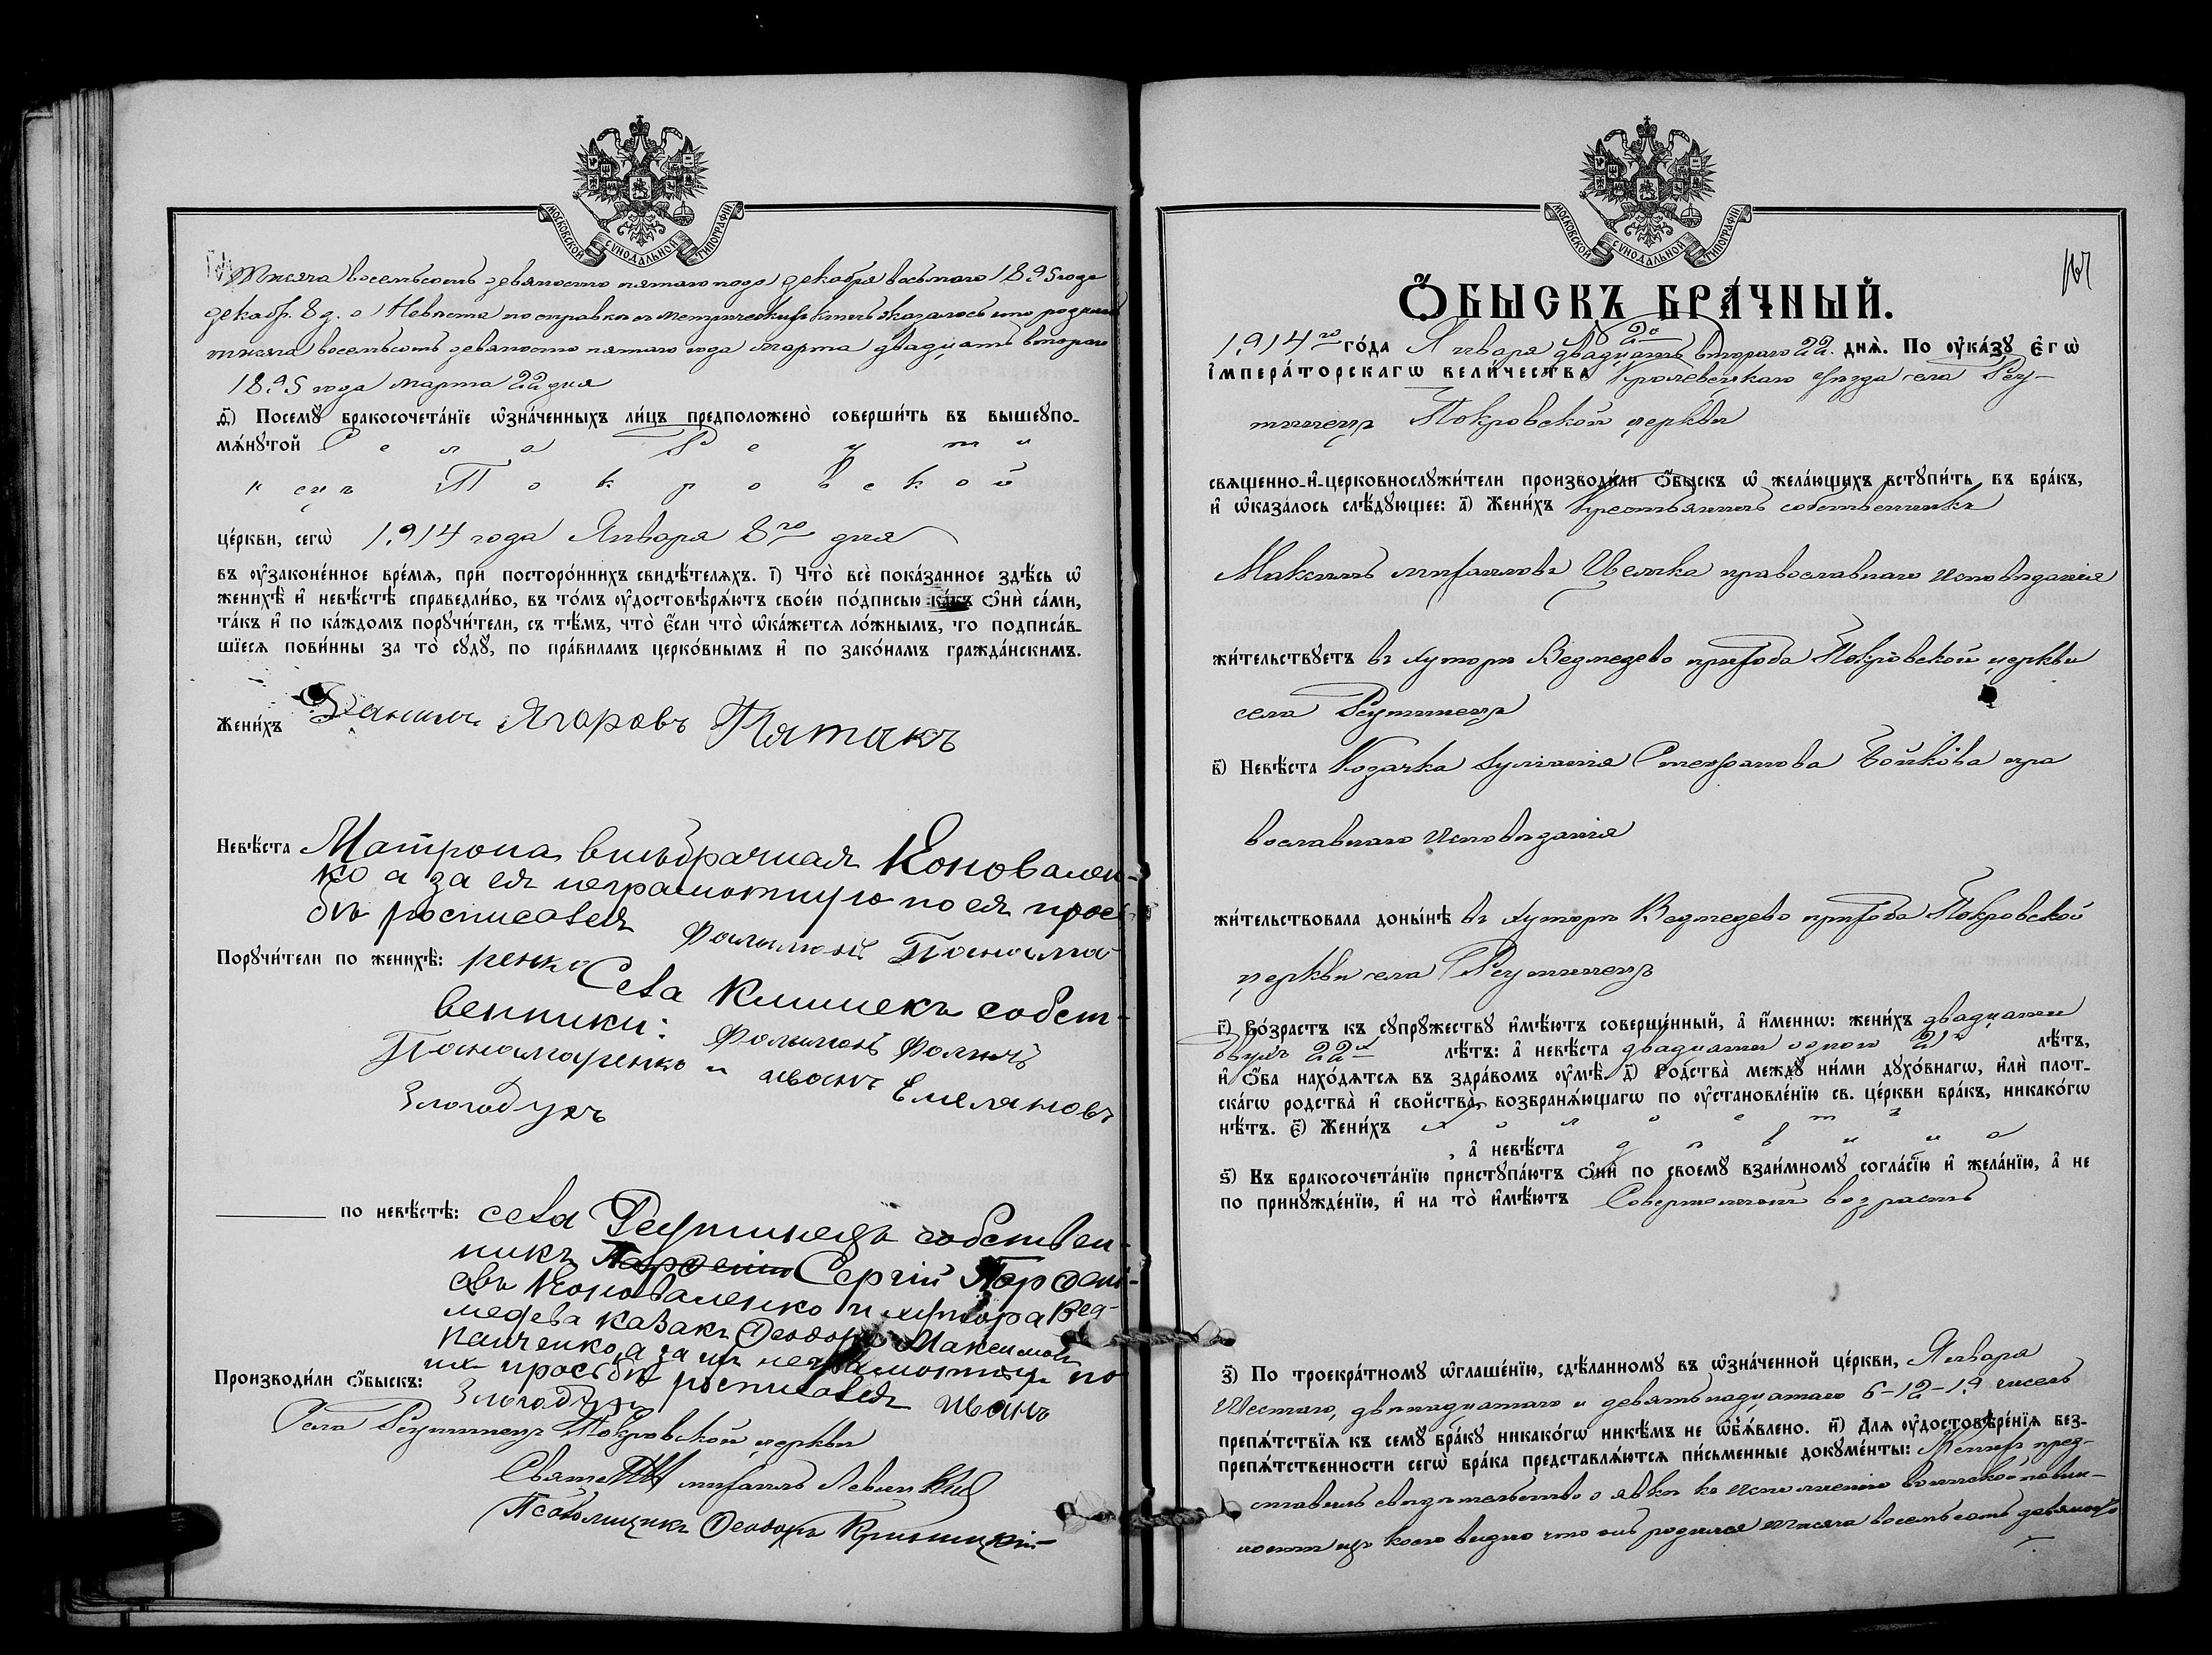 МОСКОВСКОЙ СѴНОДАЛЬНОЙ ТИПОГРАФІИ
тысяча восемьсотъ девяносто пятаго года декабря восьмаго 1895 года
декабр. 8 д. о Невѣста по справкѣ съ метрическихъ книгъ оказалось что родилась
тысяча восемьсотъ девяносто пятаго года марта двадцать втораго
1895 года марта 22 дня
д҃) Посемꙋ̀ бракосочета́нїе ѡ҆зна́ченныхъ ли́цъ предположено̀ соверши́ть въ вышеꙋпо-
мѧ́нꙋтой Села Реути
нецъ Покровской
це́ркви, сегѡ̀ 1914 года Января 8го дня
въ ᲂу҆законе́нное вре́мѧ, при посторо́ннихъ свидѣ́телѧхъ. і҃) Что̀ всѐ пока́занное здѣ́сь ѡ҆
женихѣ̀ и҆ невѣ́стѣ справедли́во, въ то́мъ ᲂу҆достовѣрѧ́ютъ свое́ю по́дписью ка́къ ѻ҆нѝ са́ми,
та́къ и҆ по ка́ждомъ порꙋчи́тели, съ тѣ́мъ, что̀ є҆́сли что̀ ѡ҆ка́жетсѧ ло́жнымъ, то подписа́в-
шїесѧ пови́нны за то̀ сꙋдꙋ̀, по пра́виламъ церко́внымъ и҆ по зако́намъ гражда́нскимъ.
Жени́хъ Данилъ Ягоровъ Пятакъ
Невѣ́ста Матрона внебрачная Коновален-
ко а за ея неграмотную по ея прось
бѣ росписался Филимонъ Понома-
Порꙋчи́тели по женихѣ̀: ренко Села Клишекъ собст-
венники:
Пономаренко и иванъ Емеляновъ
Злогодухъ
по невѣ́стѣ: села Реутинецъ собствен-
никъ Сергій Парфені-
евъ Коноваленко и хутора Вед-
медева казакъ Ѳеодоръ Максимовъ
Панченко, а за ихъ неграмотныхъ по
ихъ просьбѣ росписался иванъ
Злогодухъ
Производи́ли ѻ҆́быскъ:
Села Реутинецъ Покровской церкви
Священ. михаилъ
Псаломщикъ Ѳеодоръ
МОСКОВСКОЙ СѴНОДАЛЬНОЙ ТИПОГРАФІИ
Ѻ҆́БЫСКЪ БРА́ЧНЫЙ.
№ 2й
1914го го́да Января двадцать втораго 22 днѧ̀. По ᲂу҆ка́зꙋ Є҆гѡ̀
І҆мпера́торскагѡ вели́чества Кролевецкаго уѣзда села Реу-
тинецъ Покровской церкви
свѧщенно-и҆-церковнослꙋжи́тели производи́ли ѻ҆́быскъ ѡ҆ жела́ющихъ встꙋпи́ть въ бра́къ,
и҆ ѡ҆каза́лось слѣ́дꙋющее: а҃) Жени́хъ Крестьянинъ собственникъ
Максимъ михаиловъ православнаго исповѣданія
жи́тельствꙋетъ въ хуторѣ Ведмедево прихода Покровской церкви
села Реутинецъ
в҃) Невѣ́ста Козачка Стефанова Бойкова пра
вославнаго исповѣданія
жи́тельствовала доны́нѣ въ хуторѣ Ведмедево прихода Покровской
церкви села Реутинецъ
г҃) Во́зрастъ къ сꙋпрꙋ́жествꙋ и҆мѣ́ютъ соверше́нный, а҆ и҆́меннѡ: жени́хъ двадцати
двухъ 22 лѣ́тъ: а҆ невѣ́ста двадцати одного 21 лѣ́тъ,
и҆ ѻ҆́ба нахо́дѧтсѧ въ здра́вомъ ᲂу҆мѣ̀. д҃) Ро́дства междꙋ̀ ни́ми дꙋхо́внагѡ, и҆лѝ плот-
ска́гѡ родства̀ и҆ сво́йства, возбранѧ́ющагѡ по ᲂу҆становле́нїю св. це́ркви бра́къ, никако́гѡ
нѣ́тъ. є҃) Жени́хъ холостъ
, а҆ невѣ́ста дѣвица
ѕ҃) Къ бракосочета́нїю пристꙋпа́ютъ ѻ҆нѝ по своемꙋ̀ взаи́мномꙋ согла́сїю и҆ жела́нїю, а҆ не
по принꙋжде́нїю, и҆ на то̀ и҆мѣ́ютъ Совершенный возрастъ
з҃) По троекра́тномꙋ ѡ҆глаше́нїю, сдѣ́ланномꙋ въ ѡ҆зна́ченной це́ркви, Января
Шестаго, двѣнадцатаго и девятнадцатаго 6-12-19 чиселъ
препѧ́тствїѧ къ семꙋ̀ бра́кꙋ никако́гѡ никѣ́мъ не ѡ҆б̾ѧ́влено. и҃) Длѧ ᲂу҆достовѣре́нїѧ без-
препѧ́тственности сегѡ̀ бра́ка представлѧ́ютсѧ пи́сьменные докꙋме́нты: Женихъ пред-
ставилъ свидетельство о явкѣ къ исполненію воинской повин-
ности изъ коего видно что онъ родился тысяча восемьсотъ девяносто